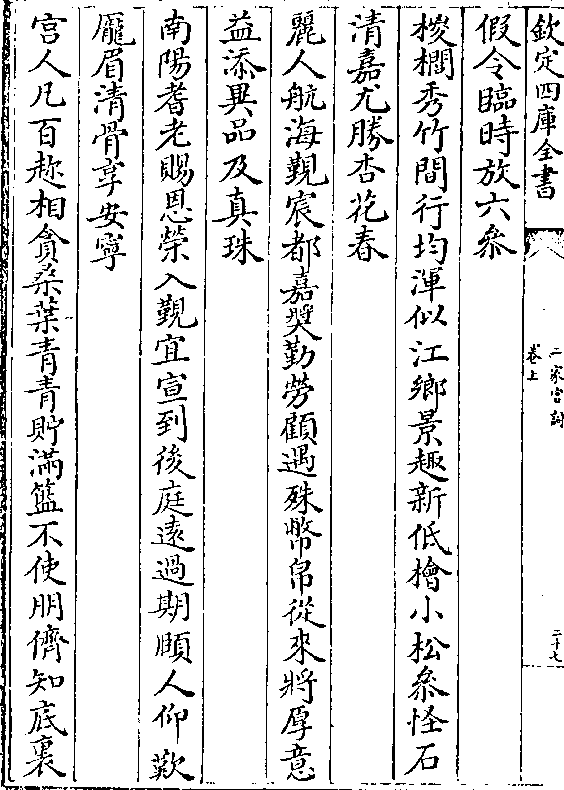 欽定四庫全書
二家宮詞
卷上
二十七
假令臨時放六參
椶櫚秀竹間行均渾似江鄉景趣新低檜小松參怪石
清嘉尤勝杏花春
麗人航海覲宸都嘉奬勤勞顧遇殊幣帛從來將厚意
益添異品及真珠
南陽耆老賜恩榮入覲宜宣到後庭遠過期頤人仰歎
龎眉清骨享安寧
宫人凡百趂相貪桑葉青青貯滿籃不使朋儕知底裏